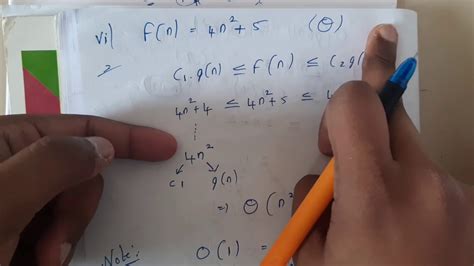 vi) f(n) = 4n² + 5 (Θ)
C₁.g(n) ≤ f(n) ≤ C₂g(
4n²+4 ≤ 4n²+5 ≤
4n²
C₁ g(n)
⇒ Θ(n²
Note: O(1) =